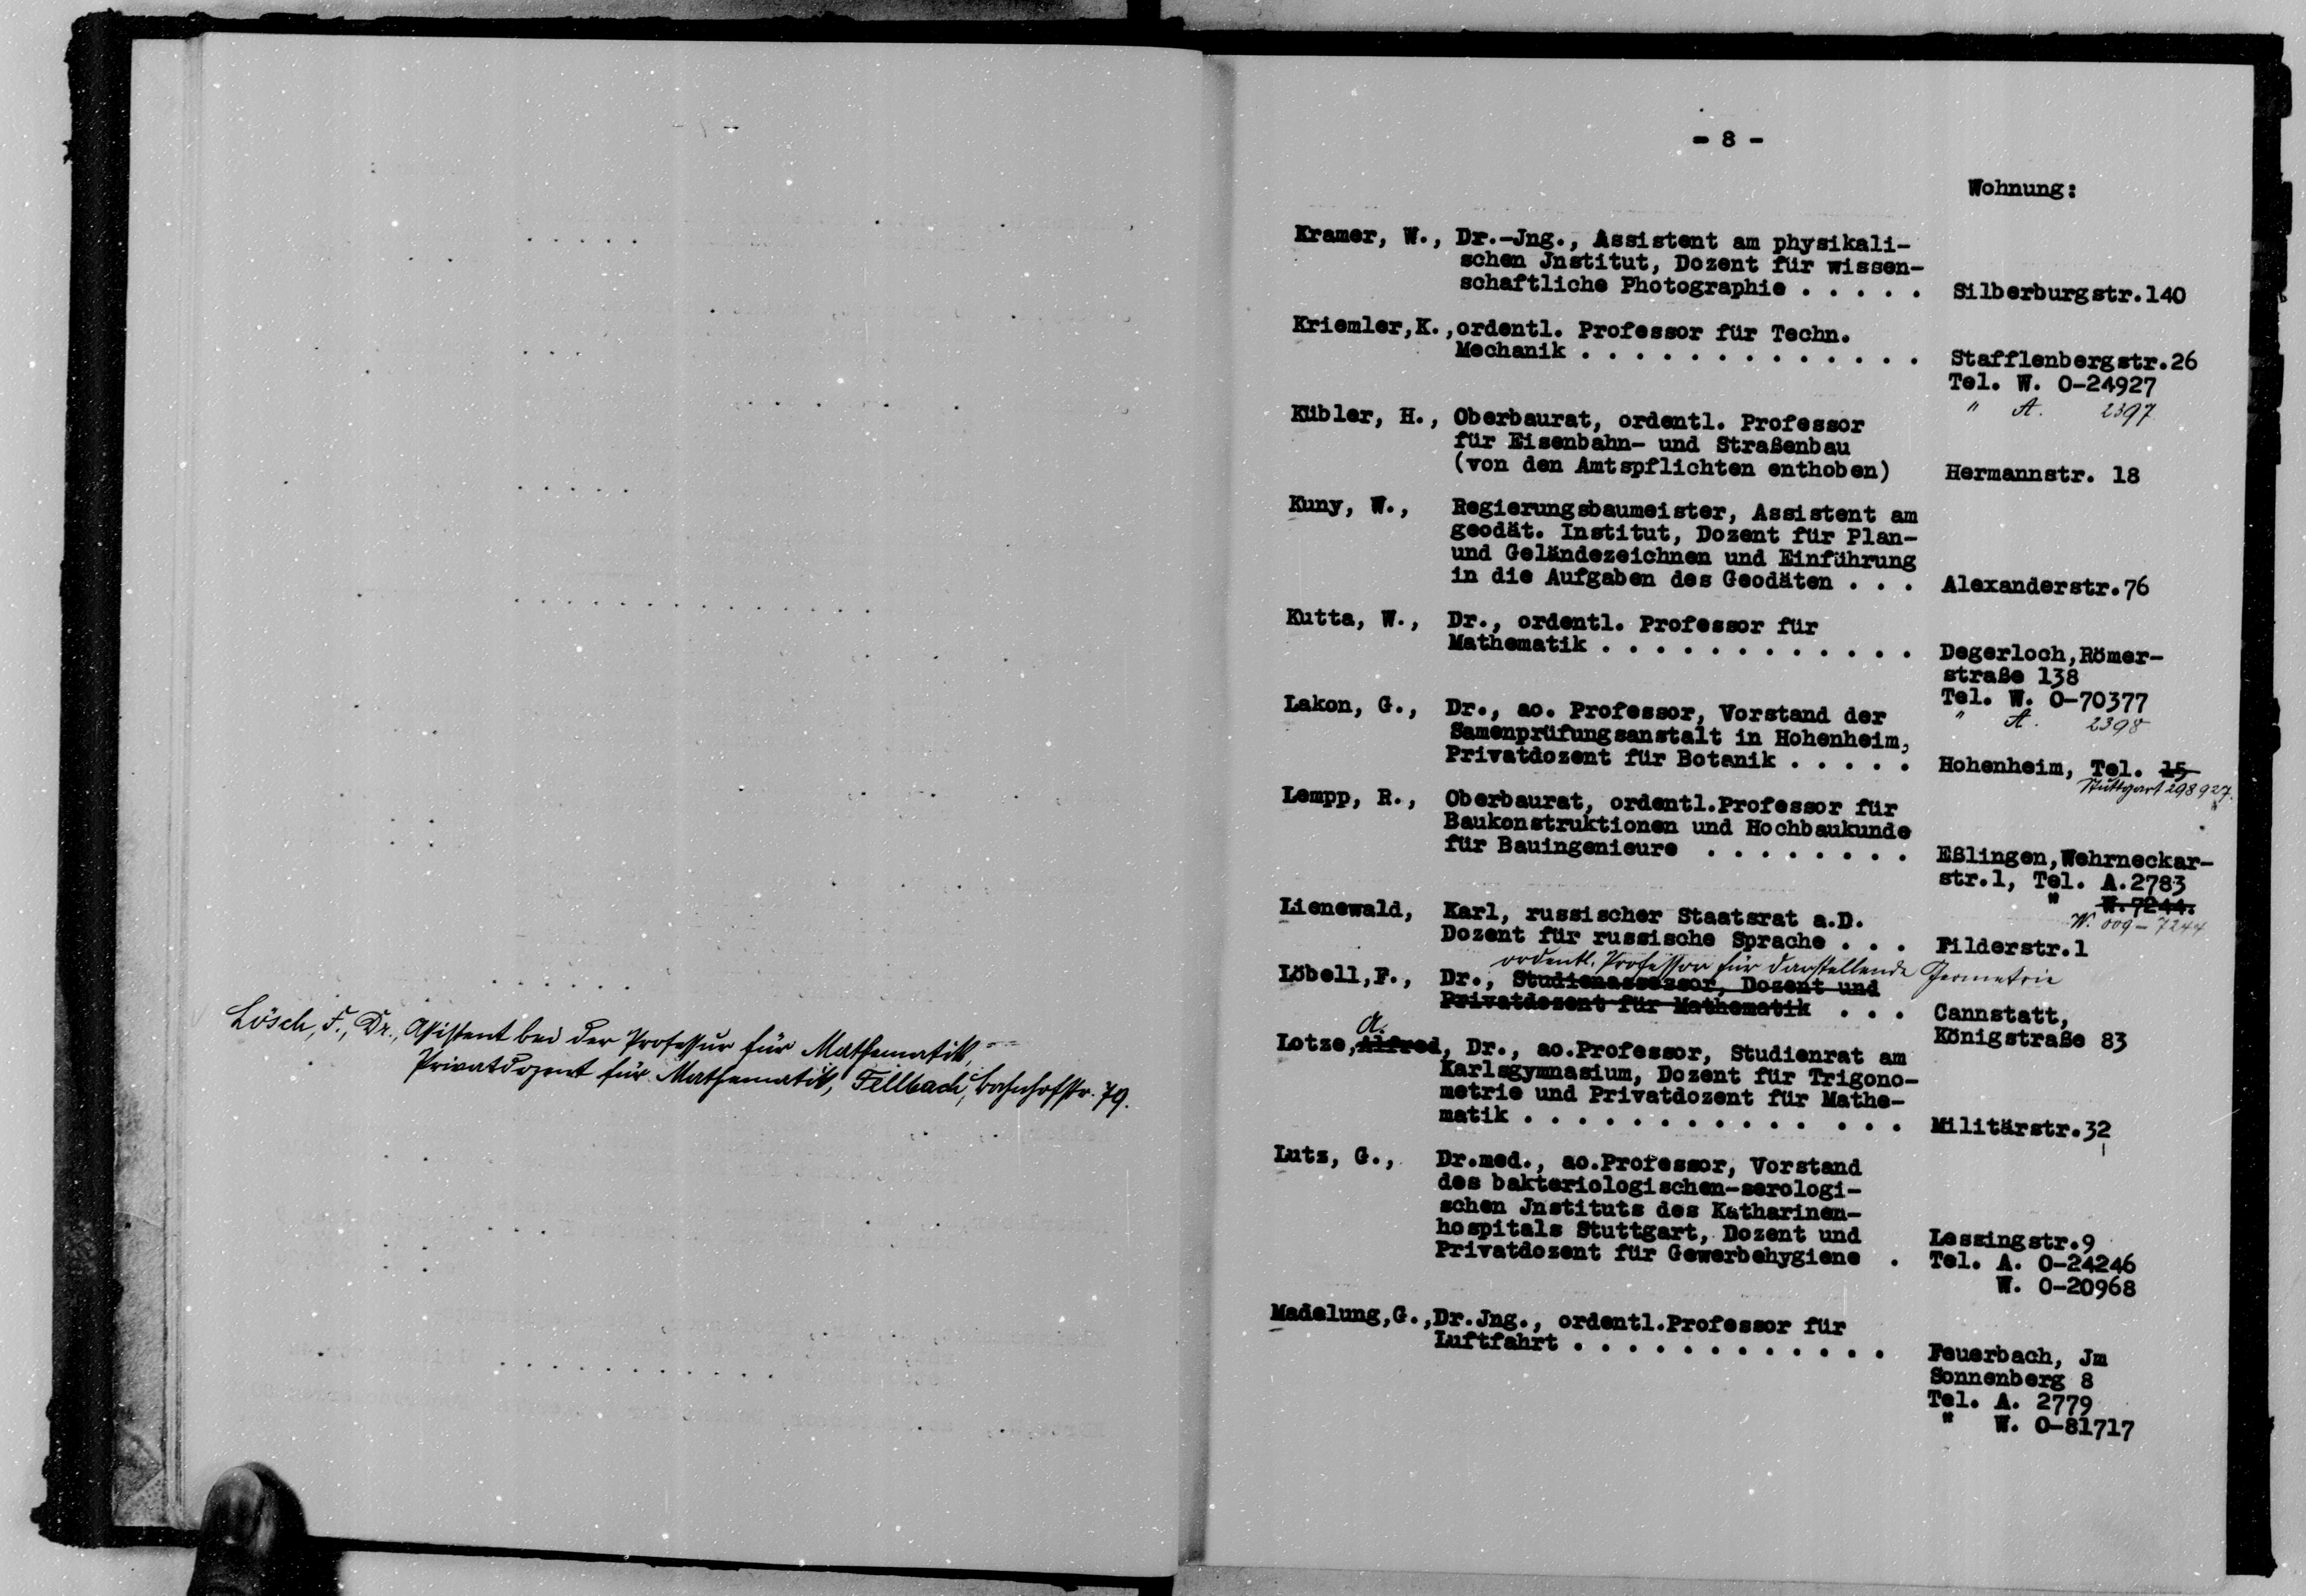 Lösch, F., Dr., Assistent bei der Professur für Mathematik
Privatdozent für Mathematik, Fellbach, Bahnhofstr. 79.
- 8 -
Wohnung:
Kramer, W., Dr.-Jng., Assistent am physikali-
schen Jnstitut, Dozent für wissen-
schaftliche Photographie . . . . . Silberburgstr.140
Kriemler,K.,ordentl. Professor für Techn.
Mechanik . . . . . . . . . . . . . Stafflenbergstr.26
Tel. W. 0-24927
" A. 2397
Kübler, H., Oberbaurat, ordentl. Professor
für Eisenbahn- und Straßenbau
(von den Amtspflichten enthoben) Hermannstr. 18
Kuny, W., Regierungsbaumeister, Assistent am
geodät. Institut, Dozent für Plan-
und Geländezeichnen und Einführung
in die Aufgaben des Geodäten . . . Alexanderstr.76
Kutta, W., Dr., ordentl. Professor für
Mathematik . . . . . . . . . . . . Degerloch,Römer-
straße 138
Tel. W. 0-70377
" A. 2398
Lakon, G., Dr., ao. Professor, Vorstand der
Samenprüfungsanstalt in Hohenheim,
Privatdozent für Botanik . . . . . Hohenheim, Tel. 15
Stuttgart 298927.
Lempp, R., Oberbaurat, ordentl.Professor für
Baukonstruktionen und Hochbaukunde
für Bauingenieure . . . . . . . . Eßlingen,Wehrneckar-
str.1, Tel. A.2783
" W.7244.
W. 009-7244
Lienewald, Karl, russischer Staatsrat a.D.
Dozent für russische Sprache . . . Filderstr.1
ordentl. Professor für darstellende Geometrie
Löbell,F., Dr., Studienassessor, Dozent und
Privatdozent für Mathematik . . . Cannstatt,
Königstraße 83
A.
Lotze,Alfred, Dr., ao.Professor, Studienrat am
Karlsgymnasium, Dozent für Trigono-
metrie und Privatdozent für Mathe-
matik . . . . . . . . . . . . . . Militärstr.32
Lutz, G., Dr.med., ao.Professor, Vorstand
des bakteriologischen-serologi-
schen Jnstituts des Katharinen-
hospitals Stuttgart, Dozent und Lessingstr.9
Privatdozent für Gewerbehygiene . Tel. A. 0-24246
W. 0-20968
Madelung,G.,Dr.Jng., ordentl.Professor für
Luftfahrt . . . . . . . . . . . . Feuerbach, Jm
Sonnenberg 8
Tel. A. 2779
" W. 0-81717